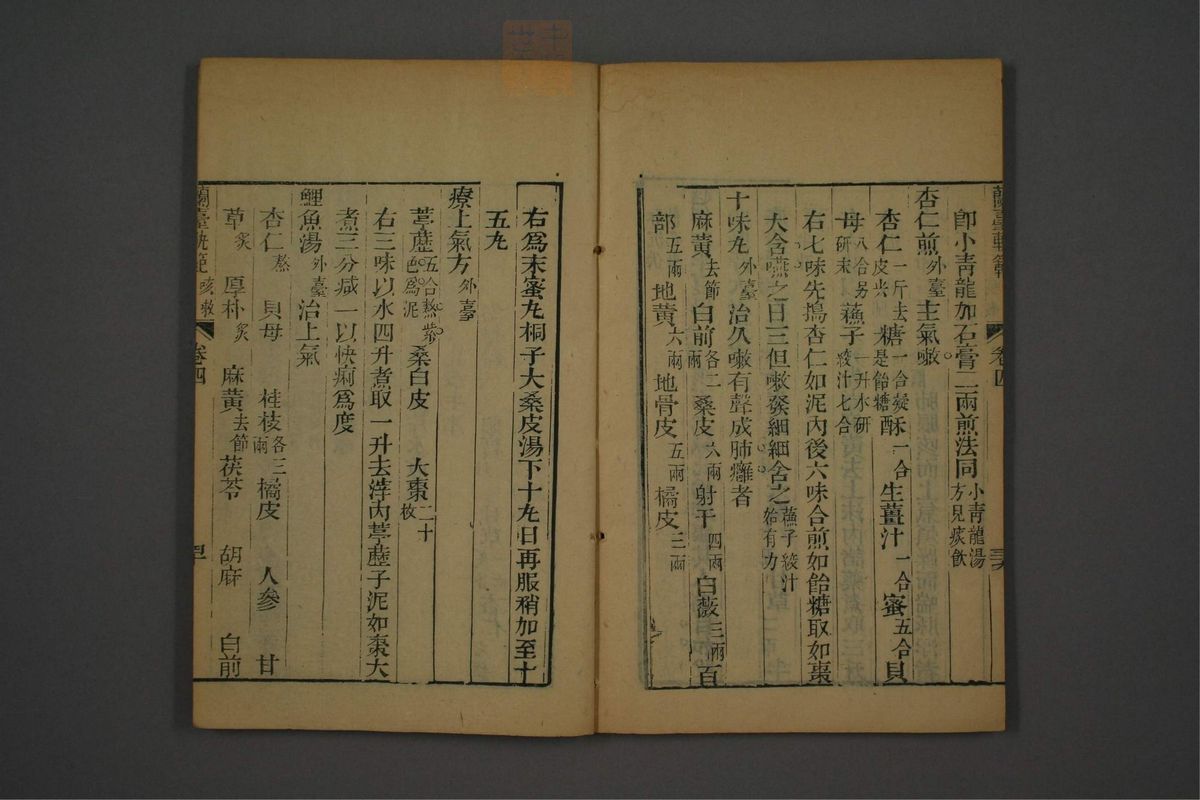 蘭臺軌範 卷四 三六
即小青龍加石膏二兩煎法同小青龍湯方見痰飲
杏仁煎外臺主氣嗽
杏仁一斤去皮尖糖一合凝是飴糖酥一合生薑汁一合蜜五合貝
母八合另研末蘓子一升水研絞汁七合
右七味先搗杏仁如泥內後六味合煎如飴糖取如棗
大含嚥之日三但嗽發細細含之蘓子絞汁始有力
十味丸外臺治久嗽有聲成肺癰者
麻黃去節白前各二兩桑皮六兩射干四兩白薇三兩百
部五兩地黃六兩地骨皮五兩橘皮三兩
右為末蜜丸桐子大桑皮湯下十丸日再服稍加至十
五丸
療上氣方外臺
葶藶五合熬紫色為泥桑白皮 大棗二十枚
右三味以水四升煮取一升去滓內葶藶子泥如棗大
煮三分減一以快痢為度
鯉魚湯外臺治上氣
杏仁熬 貝母 桂枝各三兩橘皮 人參 甘
草炙 厚朴炙 麻黃去節茯苓 胡麻 白前
蘭臺軌範 咳嗽 卷四